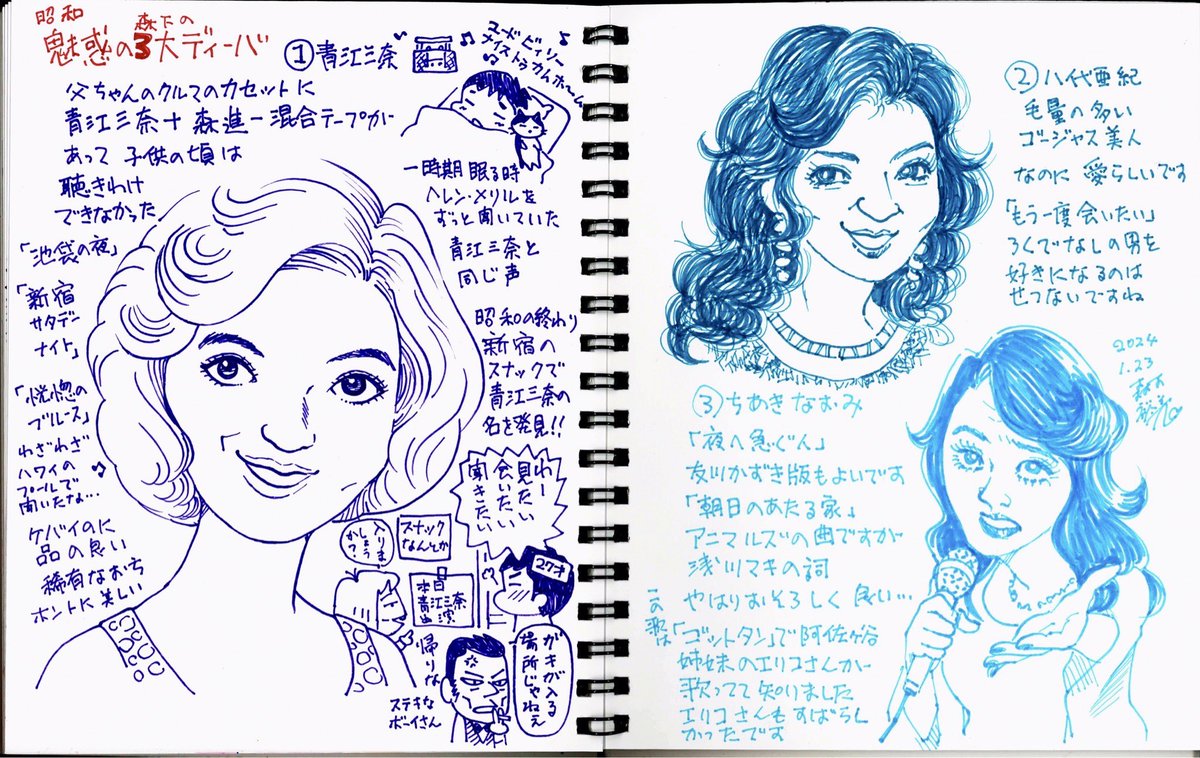 昭和
森下の
魅惑の3大ディーバ
①青江三奈
ユードビィソー
ナイストゥカムホーム
父ちゃんのクルマのカセットに
青江三奈+森進一混合テープが
あって 子供の頃は
聴きわけ
できなかった
「池袋の夜」
「新宿
サタデー
ナイト」
「恍惚の
ブルース」
わざわざ
ハワイの
プールで
聞いたな…
ケバイのに
品の良い
稀有なおち
ホントに美しい
一時期 眠る時
ヘレン・メリルを
ずっと聞いていた
青江三奈と
同じ声
昭和の終わり
新宿の
スナックで
青江三奈の
名を発見!!
わー
見たい
会いたい
聞きたい
スナック
なんとか
本日
青江三奈
出演
ガキが入る
場所じゃねぇ
帰りな
ステキな
ボーイさん
②八代亜紀
毛量の多い
ゴージャス美人
なのに 愛らしいです
「もう一度会いたい」
ろくでなしの男を
好きになるのは
せつないですね
2024
1.23
③ちあきなおみ
「夜へ急ぐ人」
友川かずき版もよいです
「朝日のあたる家」
アニマルズの曲ですが
浅川マキの詞
やはりおそろしく良い…
この歌は
「ゴットタン」で阿佐ヶ谷
姉妹のエリコさんが
歌ってて知りました
エリコさんもすばらし
かったです